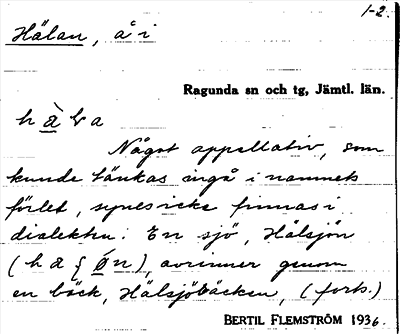 1-2.
Hålan, å i
Ragunda sn och tg, Jämtl. län.
Något appellativ, som
kunde tänkas ingå i namnets
förled, synes icke finnas i
dialekten. En sjö, Hålsjön
avrinner genom
en bäck, Hålsjöbäcken, (forts.)
BERTIL FLEMSTRÖM 1936.